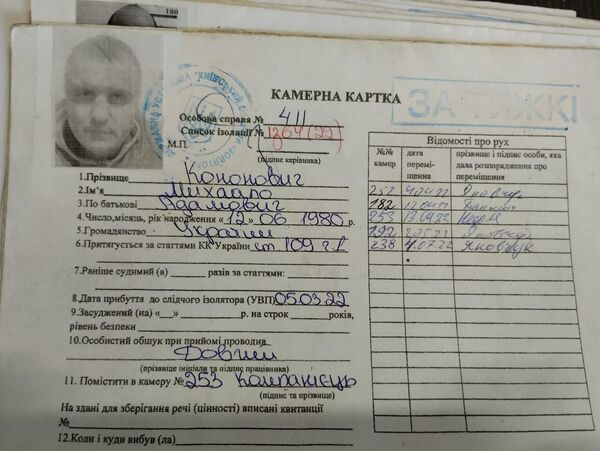 180
КАМЕРНА КАРТКА
ЗА ТЯЖКІ
Особова справа № 411
Список ізоляції № 1264(22)
М.П.
(підпис керівника)
1.Прізвище Кононович
2.Ім'я Михайло
3.По батькові Адамович
4.Число,місяць, рік народження «12» 06 1980 р.
5.Громадянство України
6.Притягується за статтями КК України ст. 109 ч.
7.Раніше судимий (а) разів за статтями:
8.Дата прибуття до слідчого ізолятора (УВП) 05.03.22
9.Засуджений (на) «__» р. на строк років,
рівень безпеки
10.Особистий обшук при прийомі проводив
Довгий
(прізвище ініціали та підпис працівника)
11. Помістити в камеру № 253 Компанієць
(підпис та прізвище)
На здані для зберігання речі (цінності) вписані квитанції
№
12.Коли і куди вибув (ла)
Відомості про рух
№№ камер
дата переміщення
прізвище і підпис особи, яка дала розпорядження про переміщення
252
182
253 13.04.22
192
238 4.07.22 Яковчук